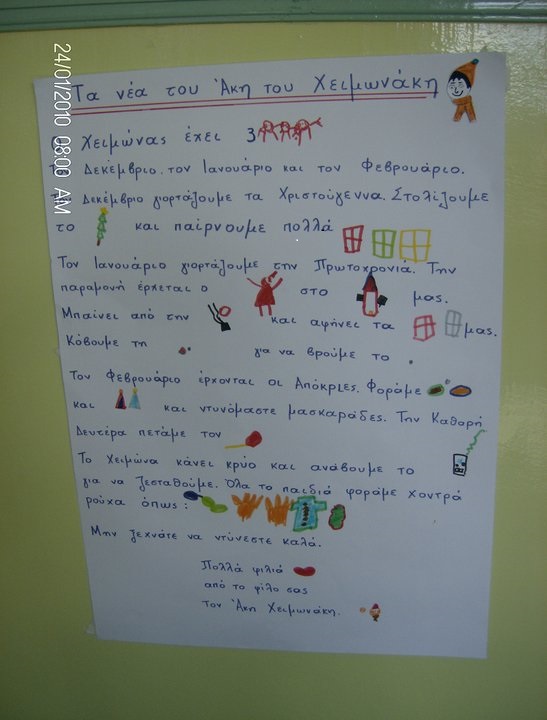 24/01/2010 08:00 AM
Τα νέα του Άκη του Χειμωνάκη
Ο Χειμώνας έχει 3
Δεκέμβριο. τον Ιανουάριο και τον Φεβρουάριο.
Δεκέμβριο γιορτάζουμε τα Χριστούγεννα. Στολίζουμε
το και παίρνουμε πολλά
Τον Ιανουάριο γιορτάζουμε την Πρωτοχρονιά. Την
παραμονή έρχεται ο στο μας.
Μπαίνει από την και αφήνει τα μας.
Κόβουμε τη για να βρούμε το
Τον Φεβρουάριο έρχονται οι Απόκριες. Φοράμε
και και ντυνόμαστε μασκαράδες. Την Καθαρή
Δευτέρα πετάμε τον
Το Χειμώνα κάνει κρύο και ανάβουμε το
για να ζεσταθούμε. Όλα τα παιδιά φοράμε χοντρά
ρούχα όπως:
Μην ξεχνάτε να ντύνεστε καλά.
Πολλά φιλιά
από το φίλο σας
τον Άκη Χειμωνάκη.